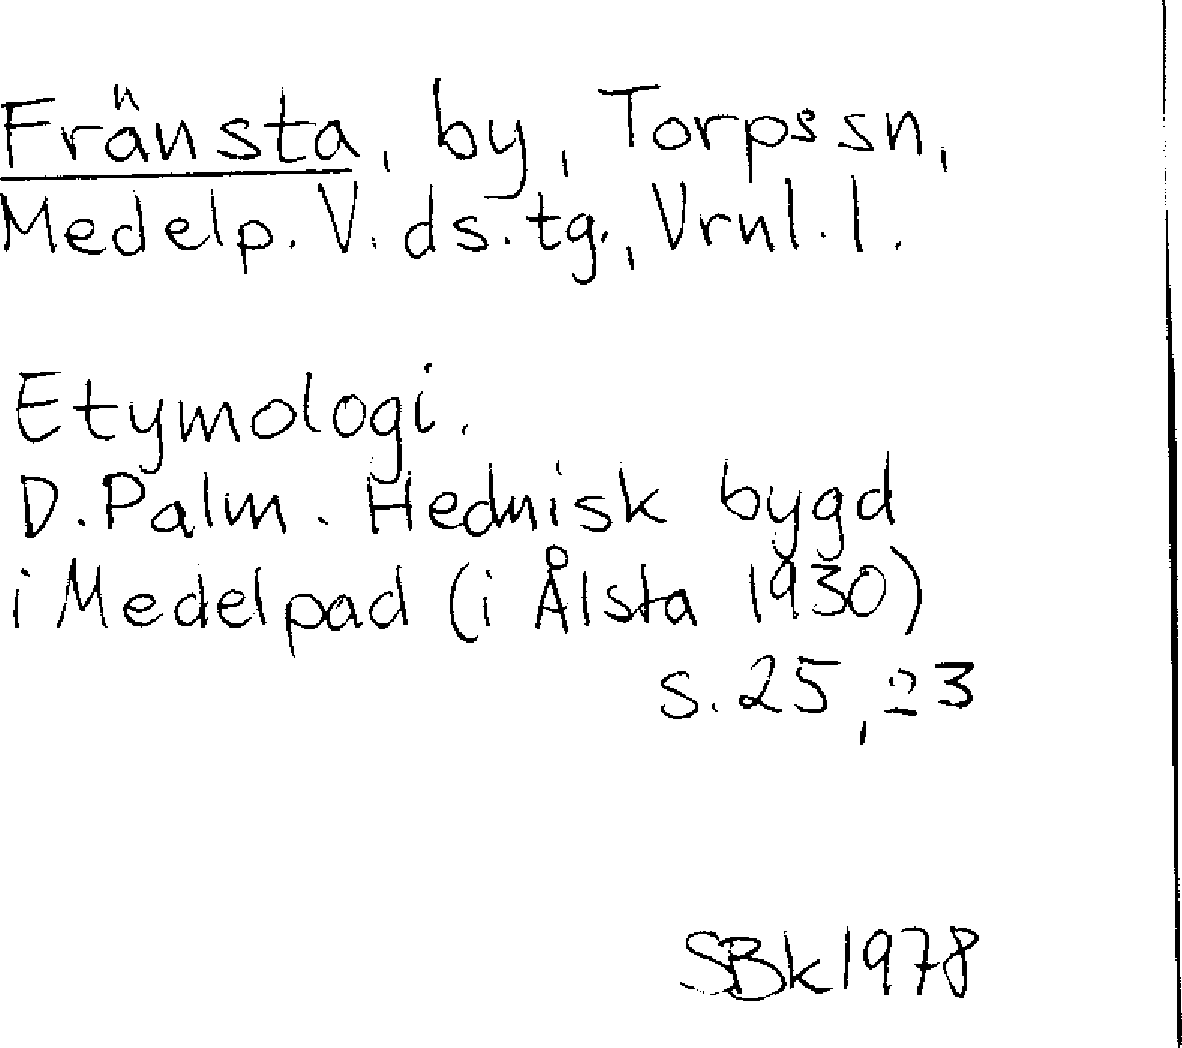 Fränsta, by, Torps sn,
Medelp. V. ds. tg., Vrnl. l.
Etymologi.
D. Palm. Hednisk bygd
i Medelpad (i Ålsta 1930)
s. 25, 23
SBk 1978